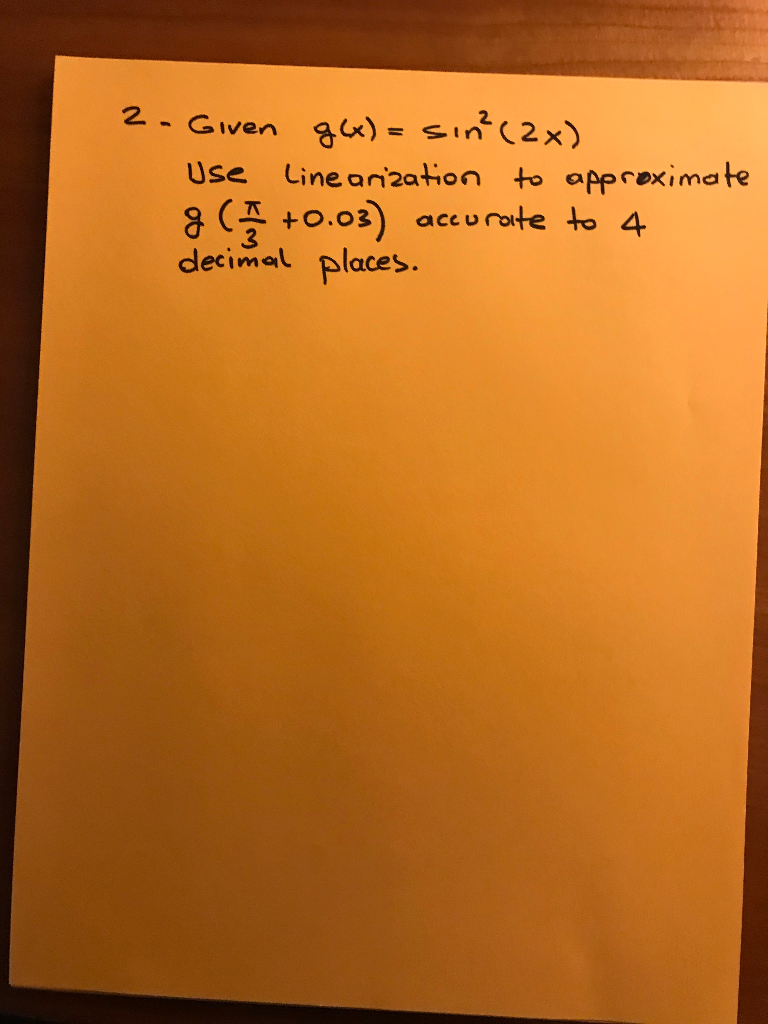 2 - Given g(x) = sin²(2x)
Use Linearization to approximate
g(π/3 + 0.03) accurate to 4
decimal places.